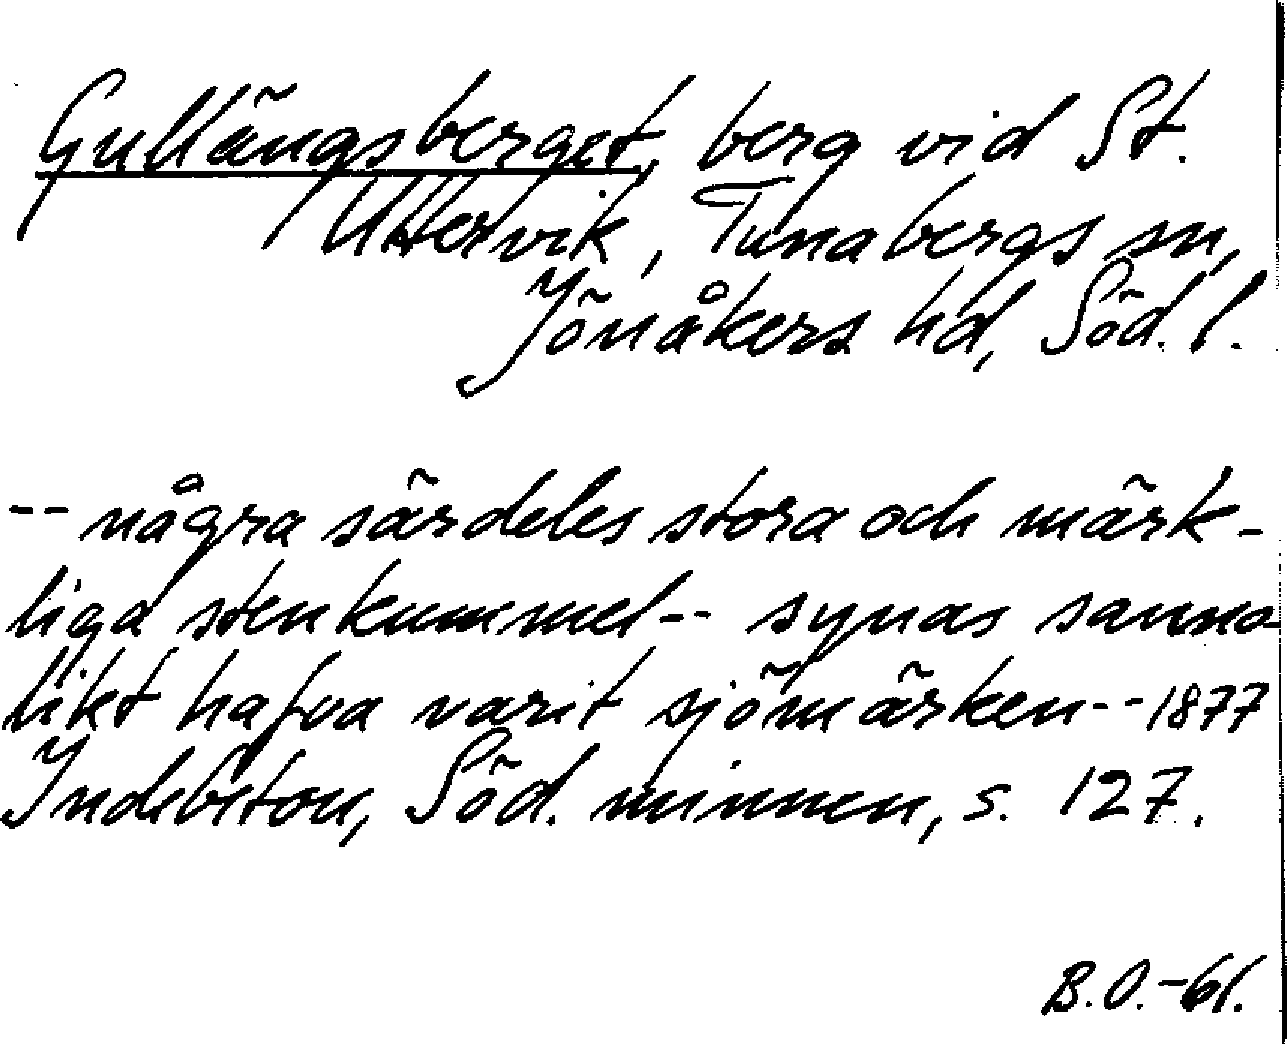 Gullängsberget, berg vid St.
Uttervik, Tunabergs sn,
Jönåkers hd, Söd. l.
-- några särdeles stora och märk-
liga stenkummel -- synas sanno-
likt hafva varit sjömärken -- 1877
Indebetou, Söd. minnen, s. 127.
B.O.-61.